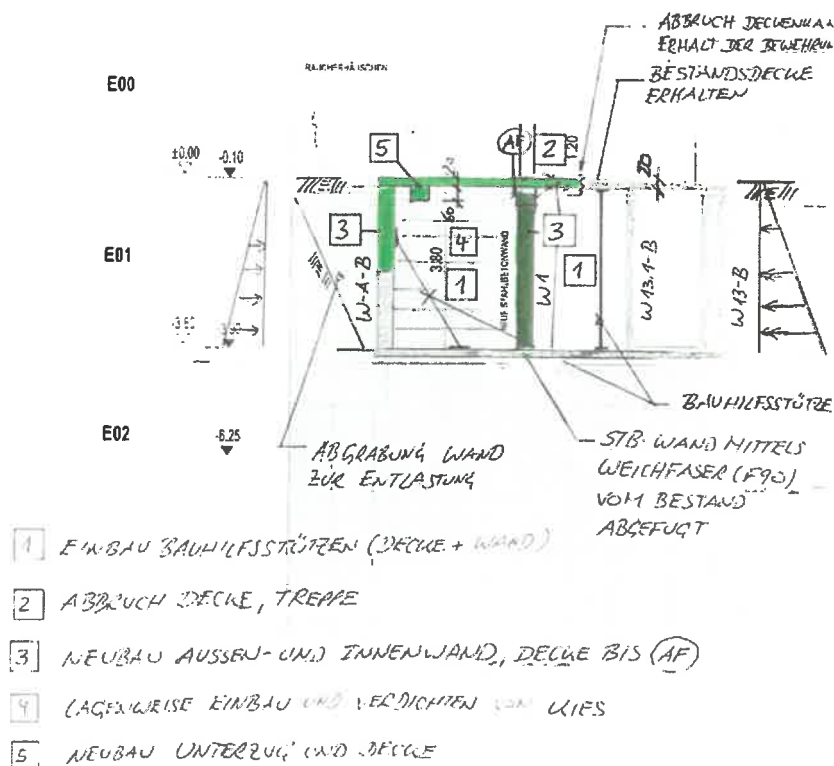 ABBRUCH DECKENKAN
ERHALT DER BEWEHRUN
BESTANDSDECKE
ERHALTEN
E00
±0,00
-0.10
5
AF
2
1.20
20
20
60
E01
3
4
3
3.80
1
1
W-A-B
W1
W13.1-B
W13-B
BAUHILFSSTÜTZE
E02
-6.25
ABGRABUNG WAND
ZUR ENTLASTUNG
STB-WAND MITTELS
WEICHFASER (F90)
VOM BESTAND
ABGEFUGT
1 EINBAU BAUHILFSSTÜTZEN (DECKE + WAND)
2 ABBRUCH DECKE, TREPPE
3 NEUBAU AUSSEN- UND INNENWAND, DECKE BIS (AF)
4 LAGENWEISE EINBAU UND VERDICHTEN VON KIES
5 NEUBAU UNTERZUG UND DECKE